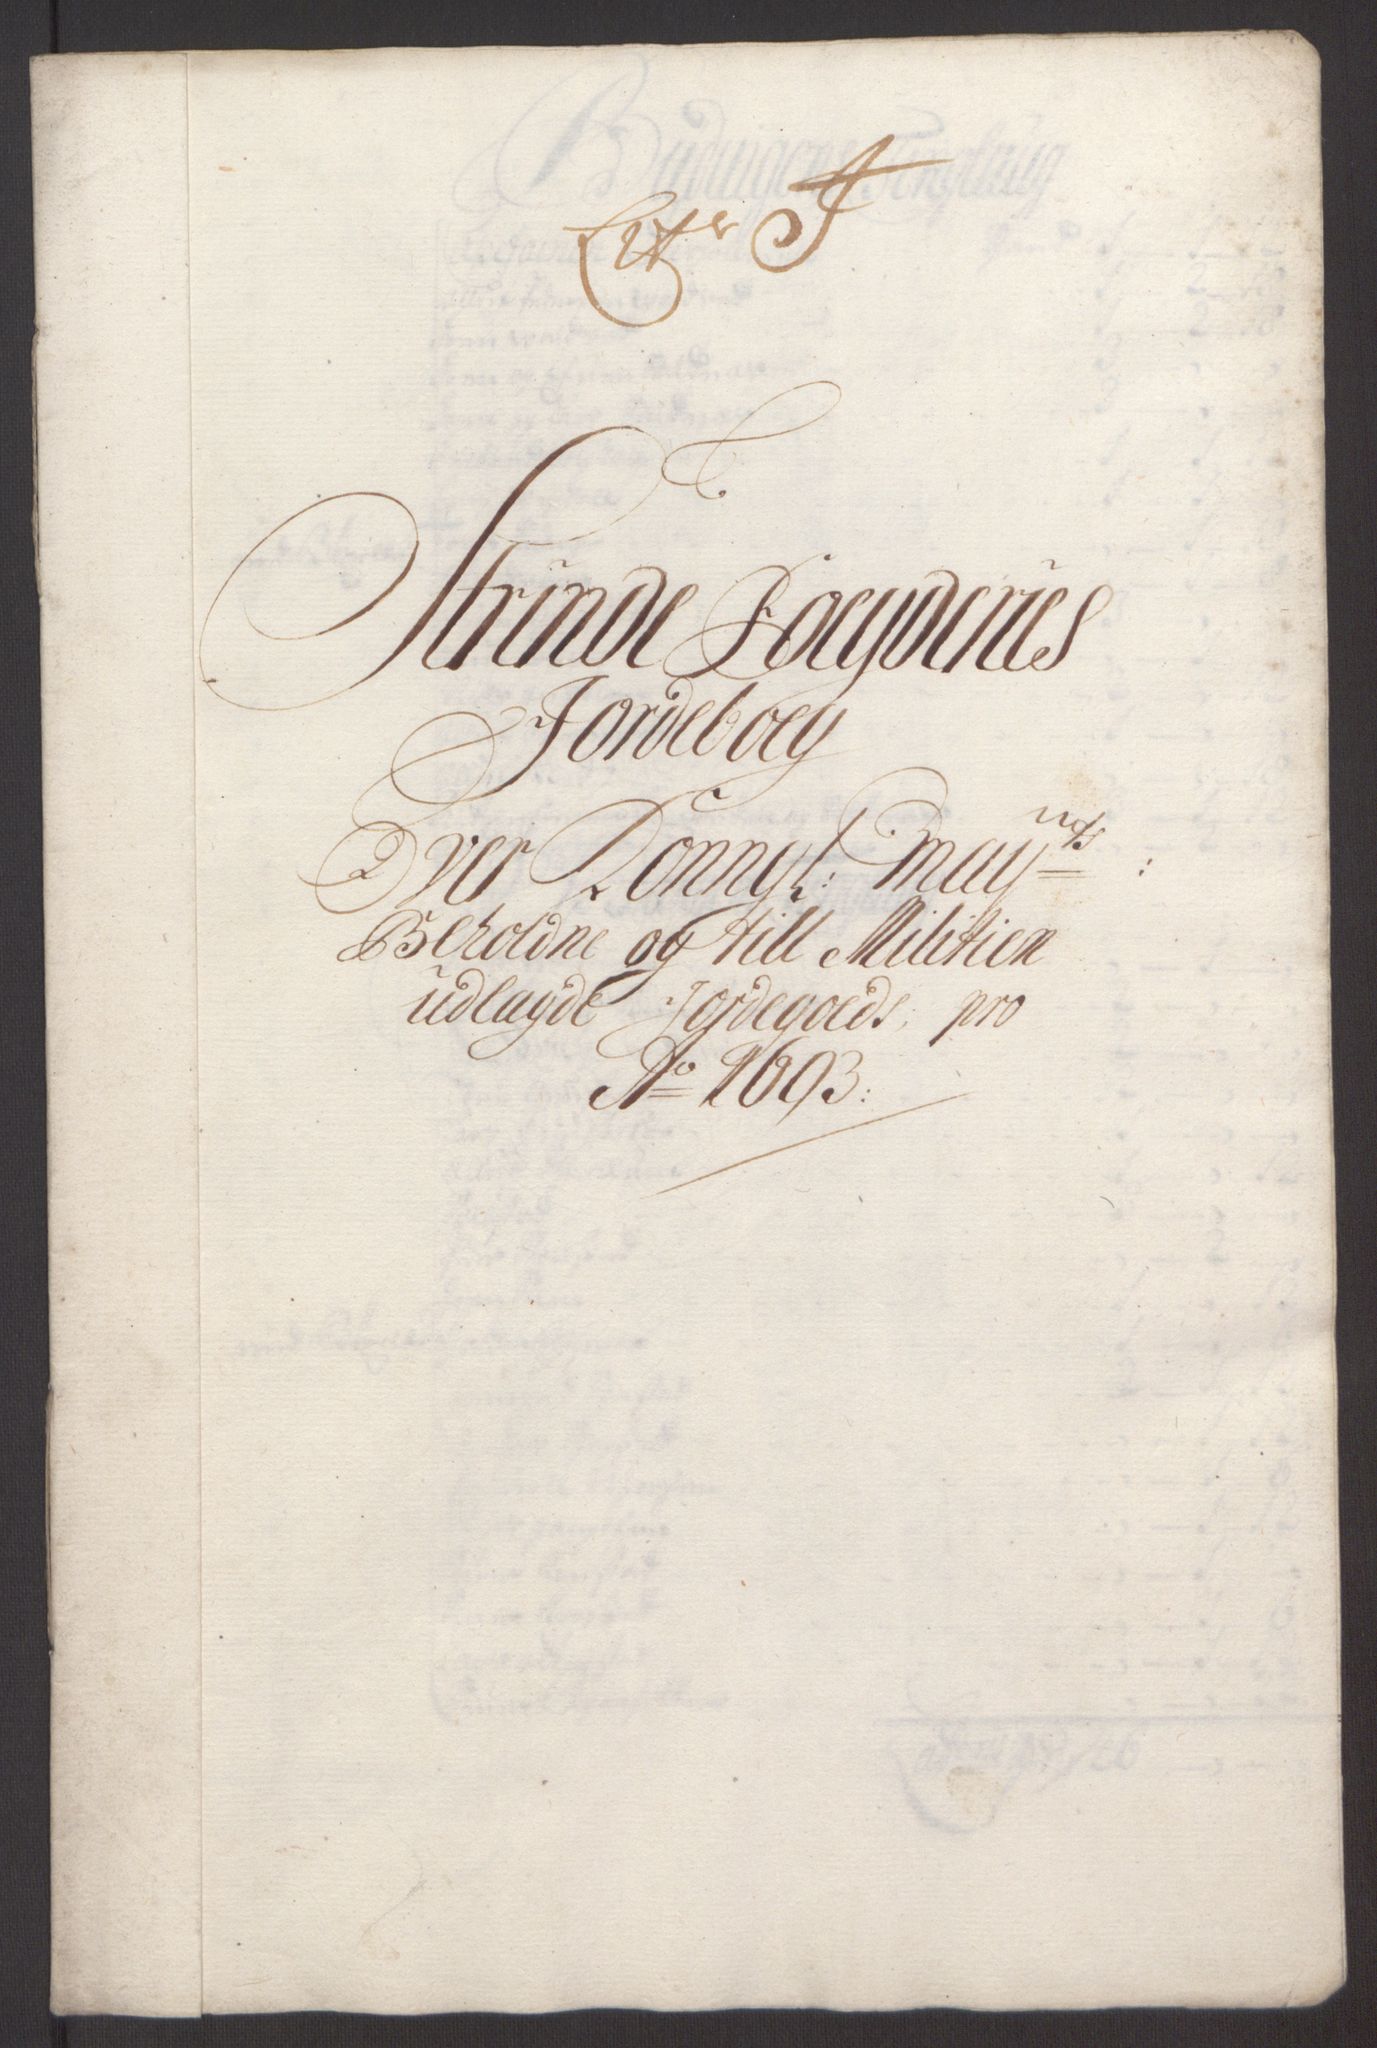 Litr J
Strinde Foegderies
Jordeboeg
Over Konngl: Mayts:
Beholdne og till Militien
udlagde Jordegoeds, pro
Ao 1693: